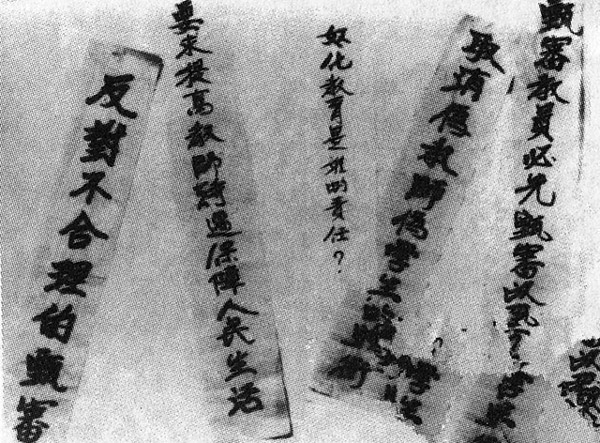 甄審教員必先甄審以
取消偽教師偽學生的頭銜
奴化教育是誰的責任？
要求提高教師待遇保障人民生活
反對不合理的甄審